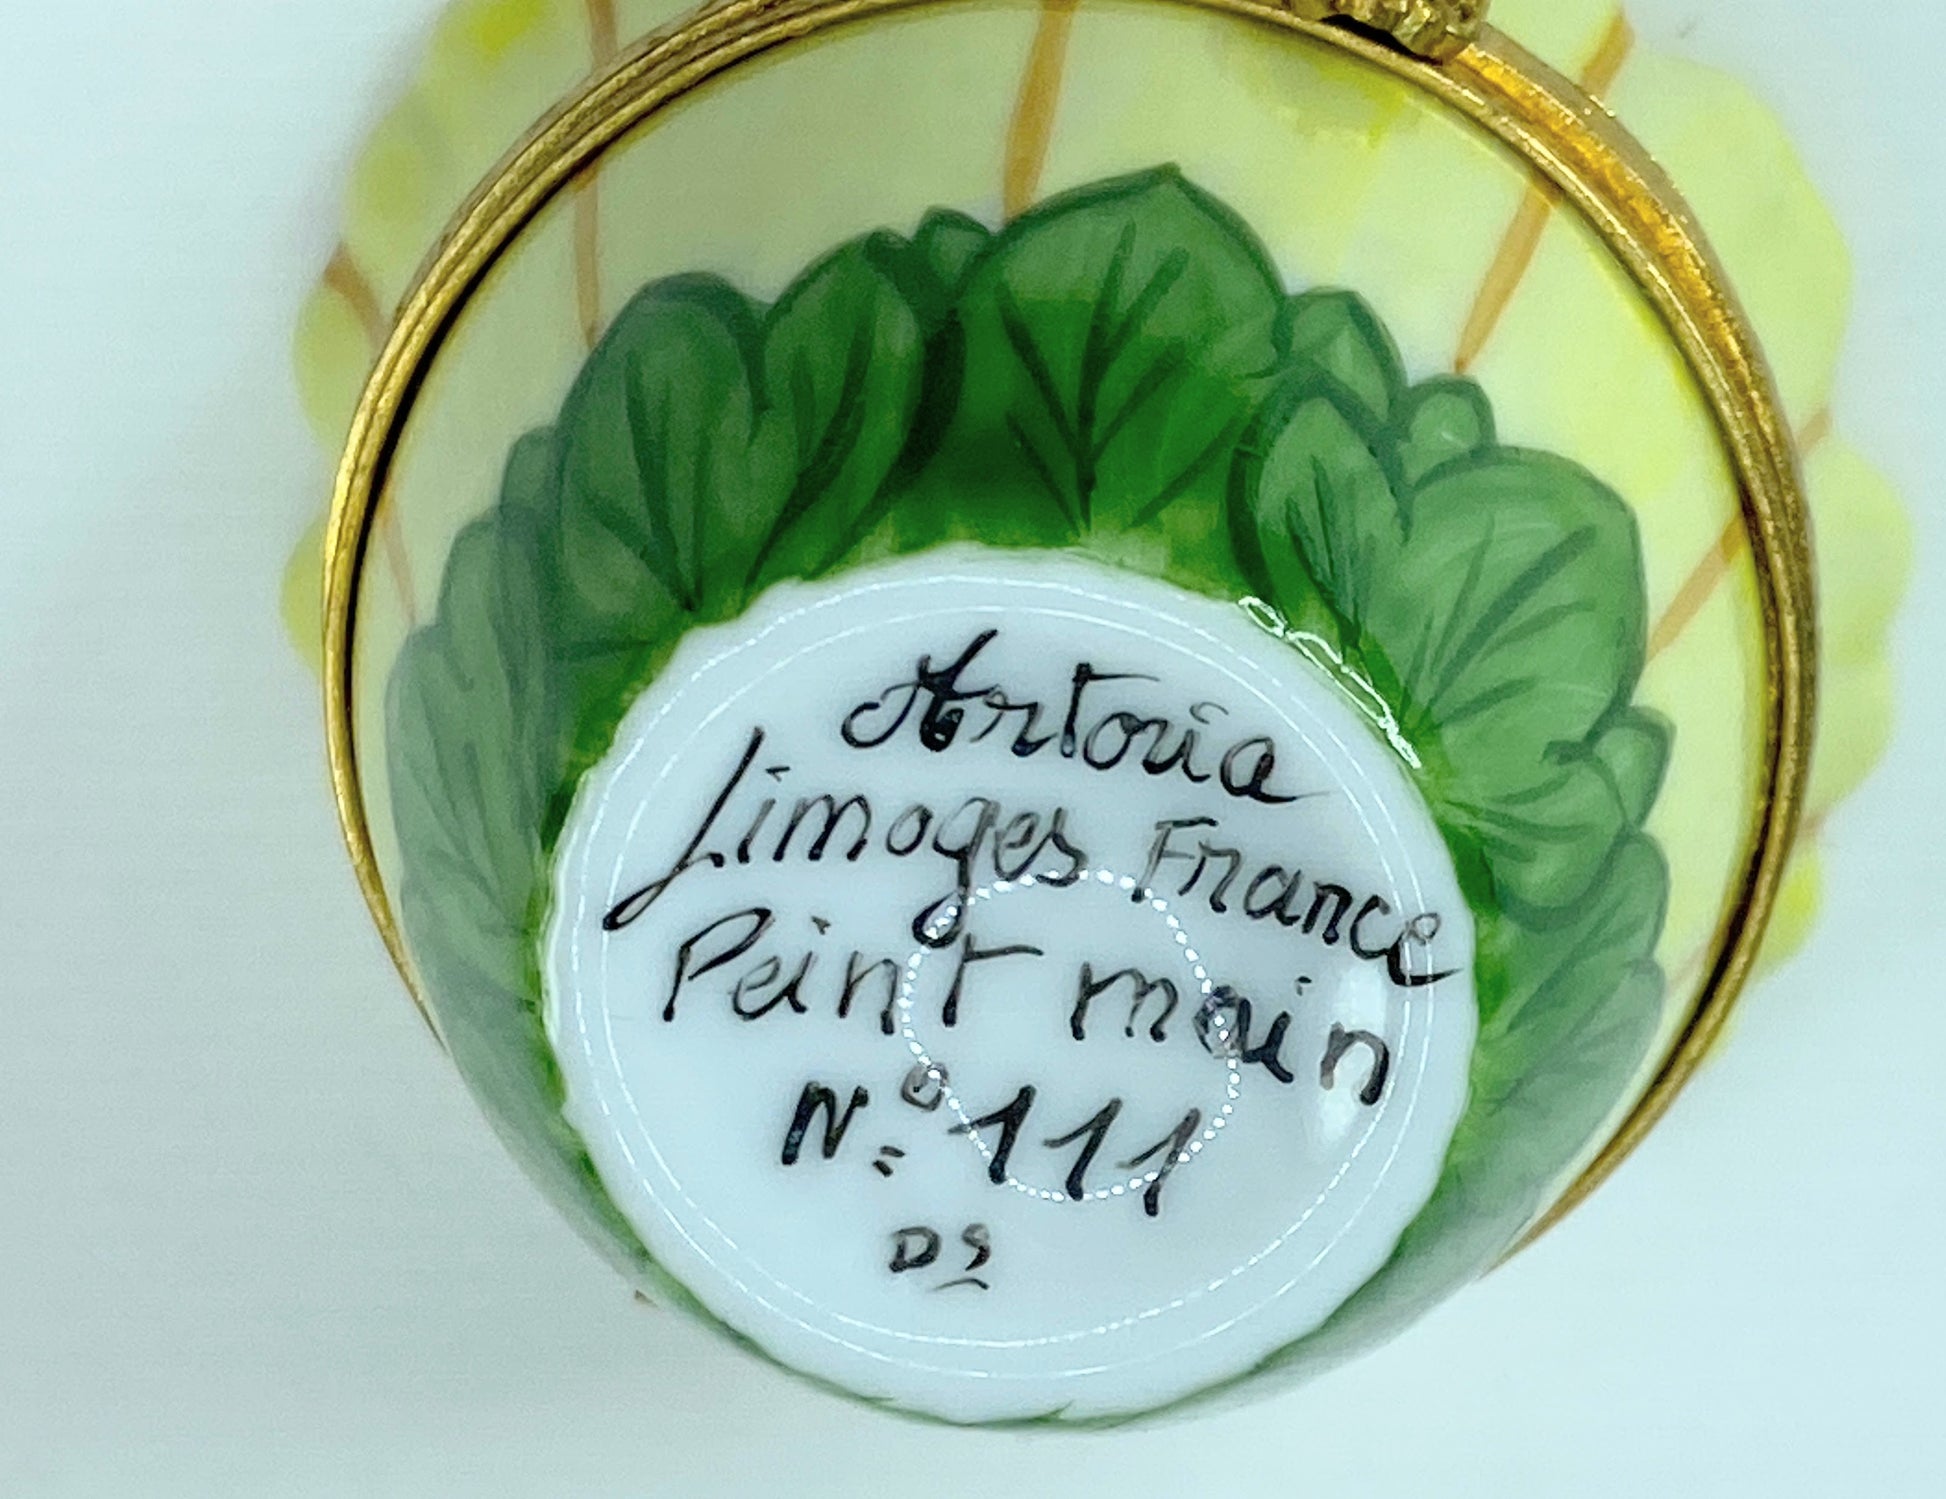 Artoria
Limoges France
Peint main
N.º 111
DS